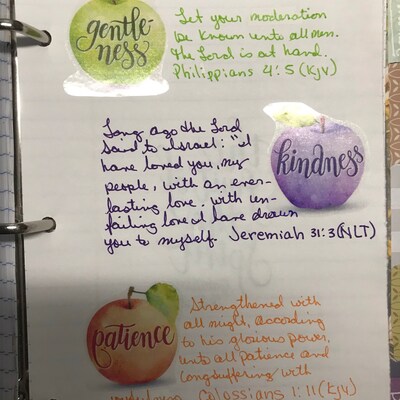 gentle-
ness
Let your moderation
be known unto all men.
the Lord is at hand.
Philippians 4:5 (KJV)
Long ago the Lord
said to Israel: "I
have loved you, my
people, with an ever-
lasting love. with un-
failing love I have drawn
you to myself. Jeremiah 31:3 (NLT)
kindness
patience
Strengthened with
all might, according
to his glorious power,
unto all patience and
longsuffering with
Colossians 1:11 (KJV)